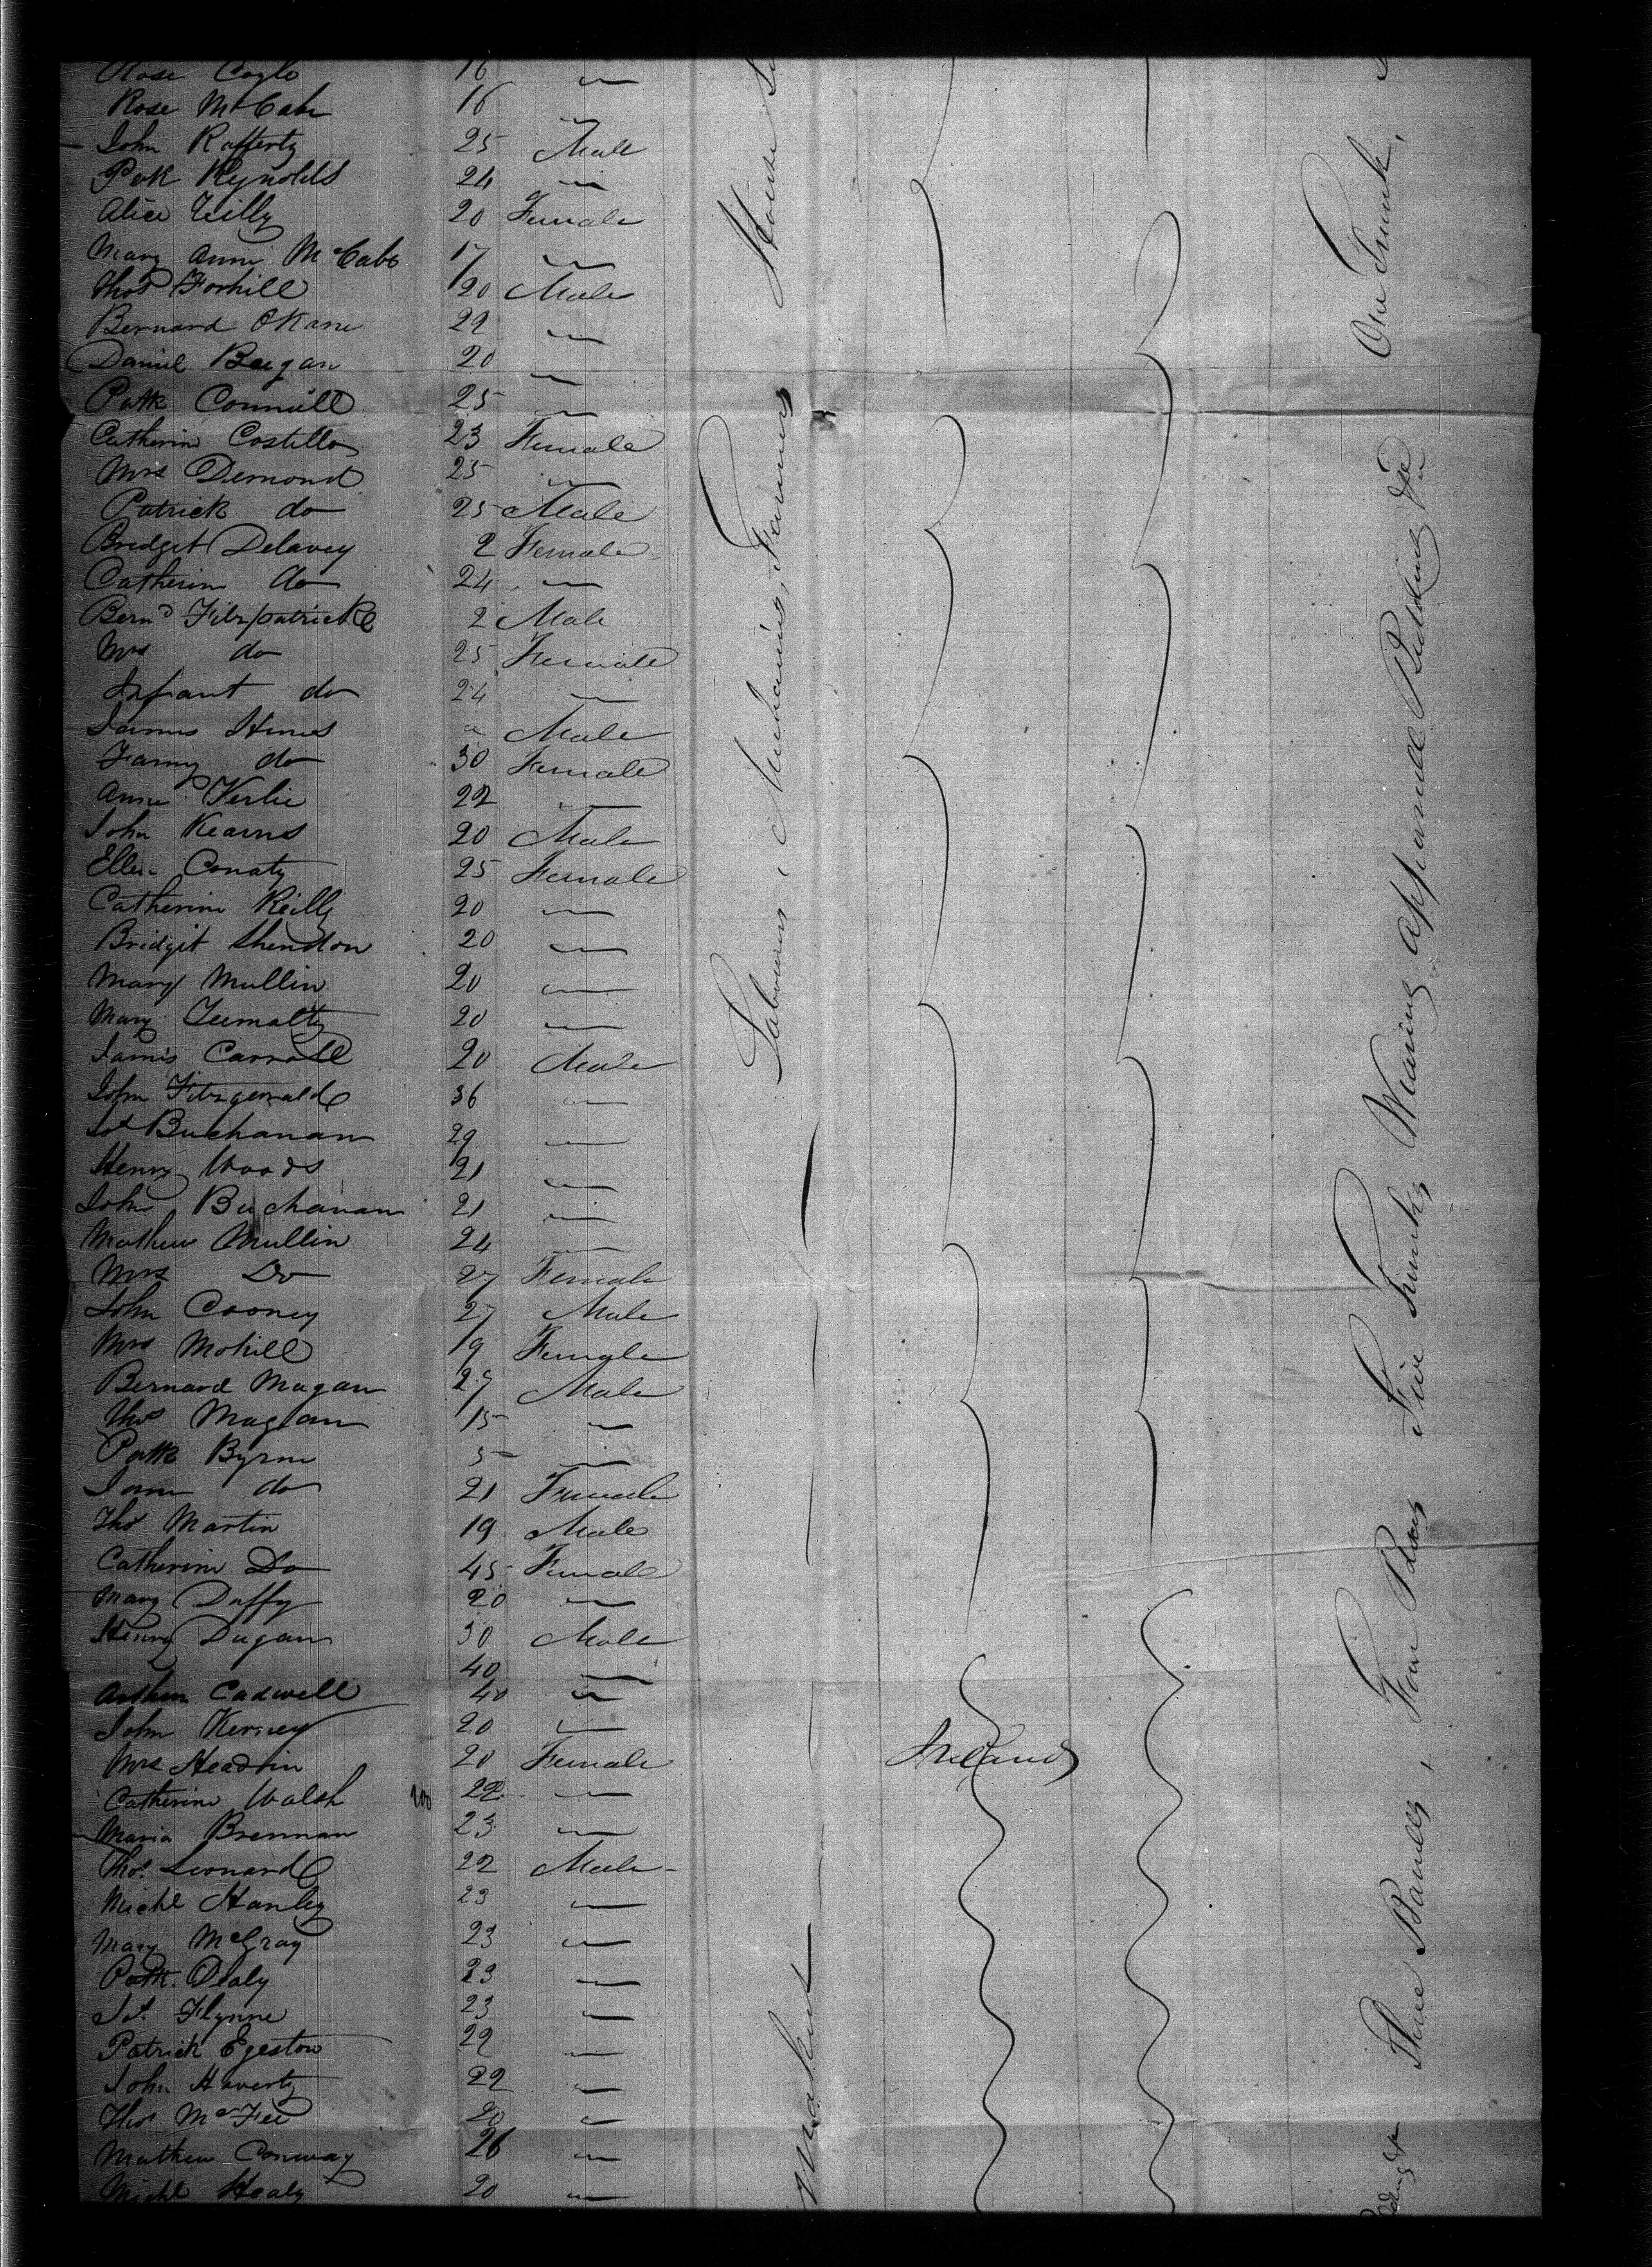 Rose Coyle 16 "
Rose McCabe 16 "
John Rafferty 25 Male
Patk Reynolds 24 "
Alice Tilly 20 Female
Mary Anne McCabe 17 "
Thos Forhill 20 Male
Bernard OKane 22 "
Daniel Beegan 20 "
Patk Connull 25 "
Catherine Costillo 23 Female
Mrs Demond 25 "
Patrick do 25 Male
Bridget Delavey 2 Female
Catherine do 24 "
Bernd Fitzpatrick 2 Male
Mrs do 25 Female
Infant do 24 "
James Hines Male
Fanny do 30 Female
Anne Kerlie 22 "
John Kearns 20 Male
Ellen Conaty 25 Female
Catherine Reilly 20 "
Bridgit Shendon 20 "
Mary Mullin 20 "
Mary Tumalty 20 "
James Carroll 20 Male
John Fitzgerald 36 "
Jos Buchanan 29 "
Henry Woods 21 "
John Buchanan 21 "
Mathew Mullin 24 "
Mrs Do 27 Female
John Cooney 27 Male
Mrs Mohill 19 Female
Bernard Magan 27 Male
Thos Magan 15 "
Patk Byrne 5 "
Jane do 21 Female
Thos Martin 19 Male
Catherine Do 45 Female
Mary Duffy 20 "
Henry Dugan 30 Male
40 "
Arthur Cadwell 40 "
John Kerney 20 "
Mrs Headrin 20 Female
Catherine Walsh 200 22 "
Maria Brennan 23 "
Thos Leonard 22 Male
Michl Hanley 23 "
Mary McGray 23 "
Patk Daly 23 "
Jas. Flynne 23 "
Patrick Egeston 22 "
John Haverty 22 "
Thos McFee 20 "
Mathew Conway 26 "
Michl Healy 20 "
House
Labourers, Mechanics, Farmers
Ireland
One Trunk,
Three Barrells, Four Boxes Five Trunks Wearing apparrell Bedding &c